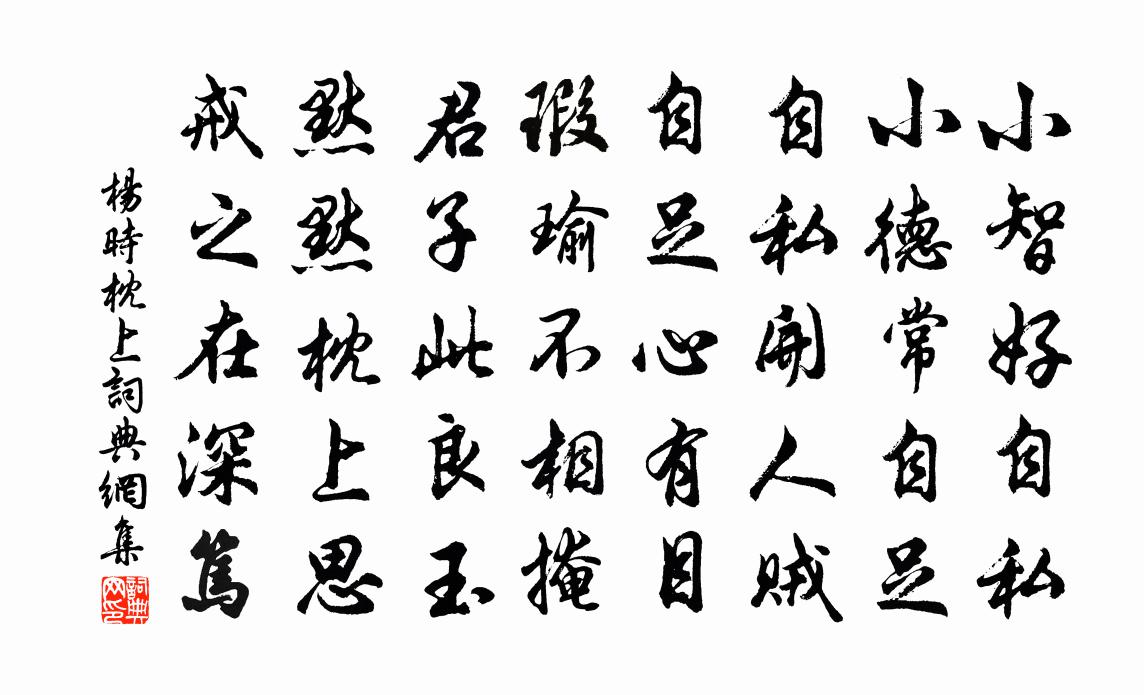 小智好自私
小德常自足
自私開人賊
自足心有目
瑕瑜不相掩
君子此良玉
默默枕上思
戒之在深篤
楊時枕上詞典網集
詞典